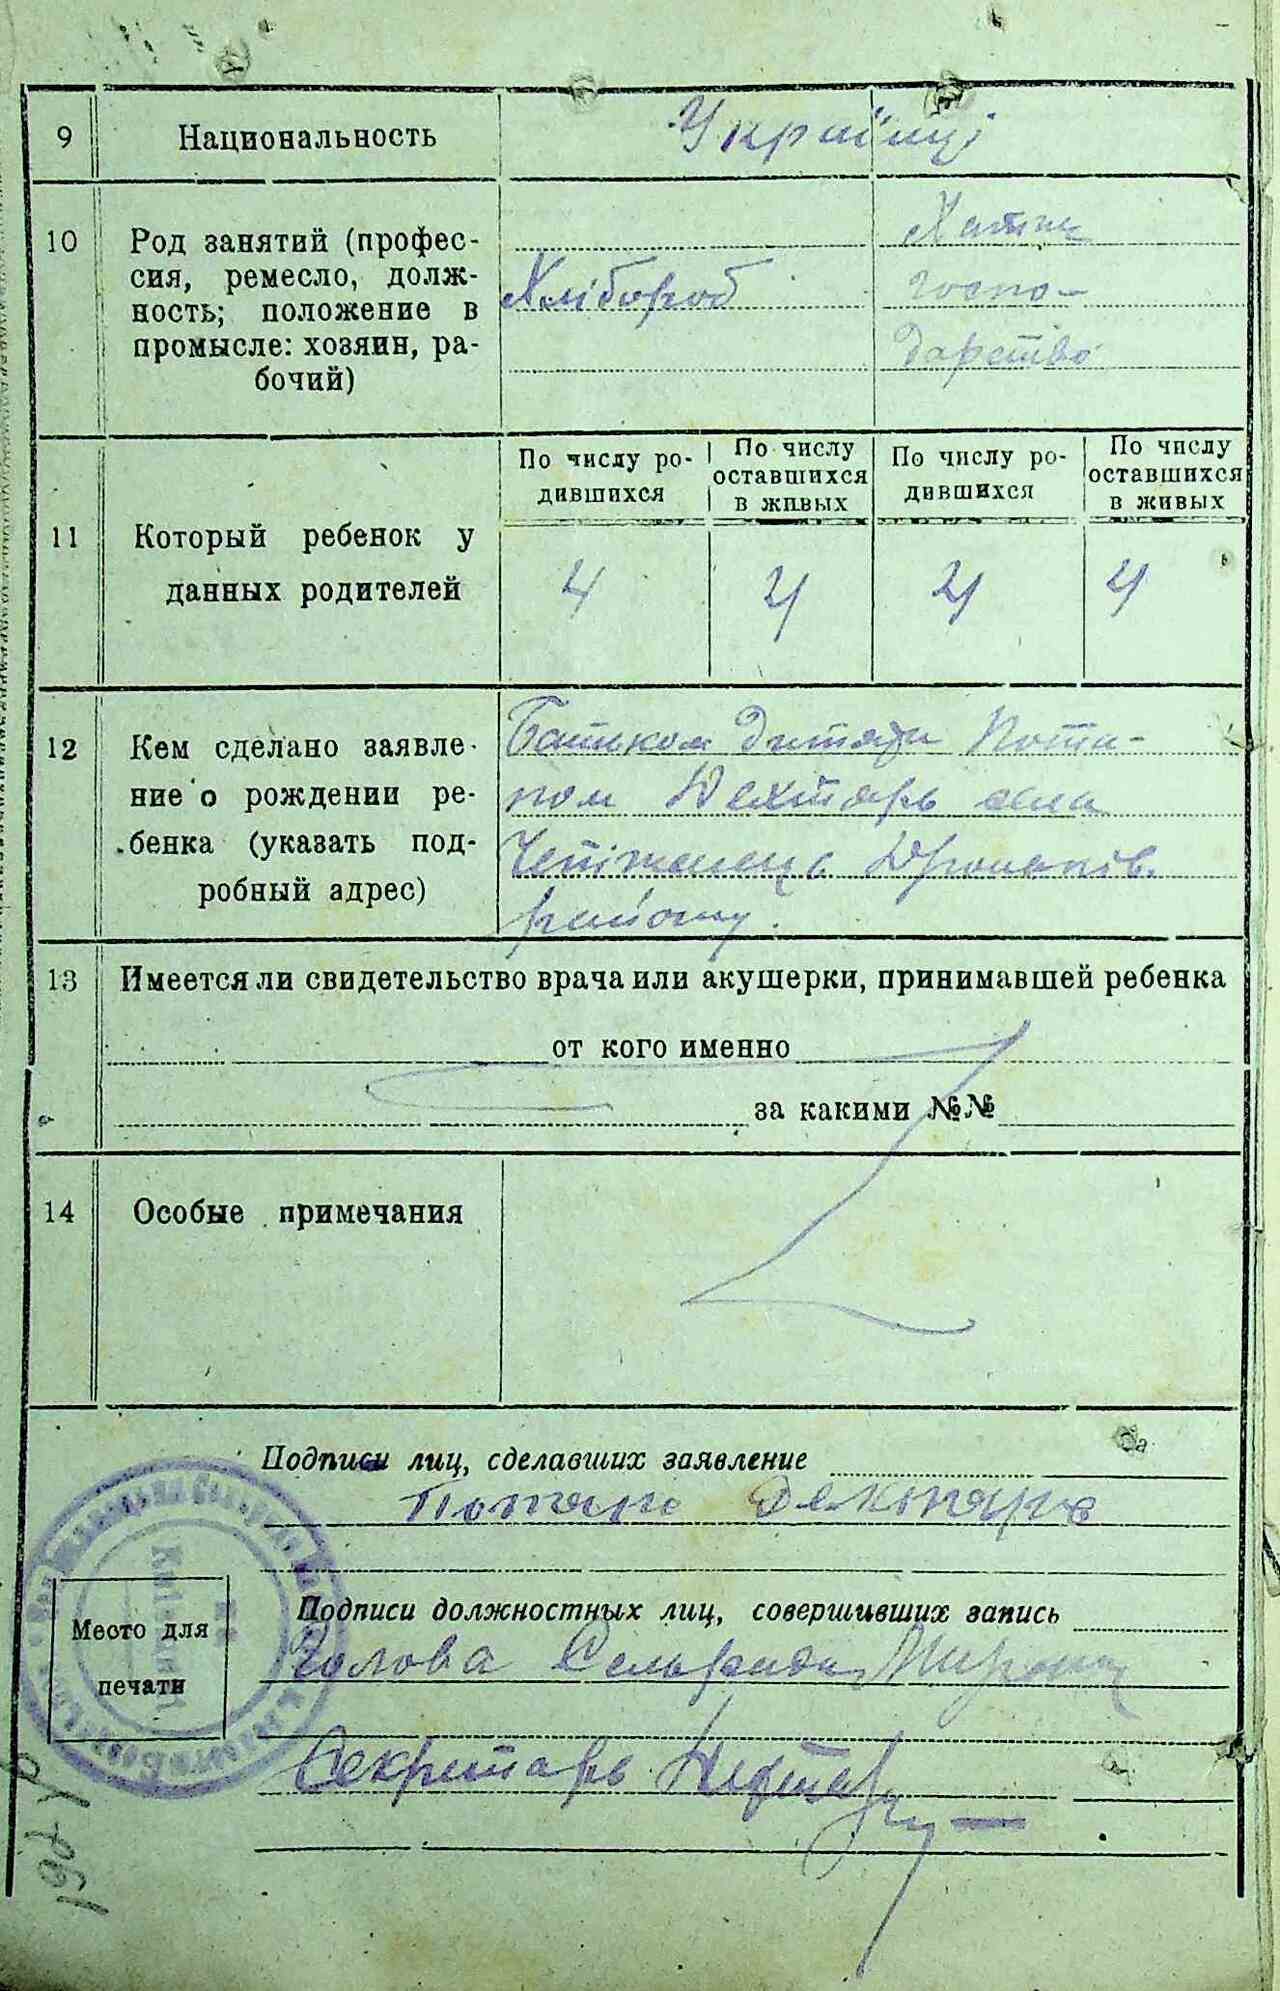 9 Национальность Українці
10 Род занятий (профес-
сия, ремесло, долж-
ность; положение в
промысле: хозяин, ра-
бочий)
Хлібороб
Хатнє
госпо-
дарство
11 Который ребенок у
данных родителей
По числу ро-
дившихся
По числу
оставшихся
в живых
По числу ро-
дившихся
По числу
оставшихся
в живых
4 4 4 4
12 Кем сделано заявле-
ние о рождении ре-
бенка (указать под-
робный адрес)
Батьком дитяти Пота-
пом Дехтярь села
району.
13 Имеется ли свидетельство врача или акушерки, принимавшей ребенка
от кого именно
за какими №№
14 Особые примечания
Подписи лиц, сделавших заявление
Потап Дехтярь
Место для
печати
Подписи должностных лиц, совершивших запись
Голова Сельради
Секретарь